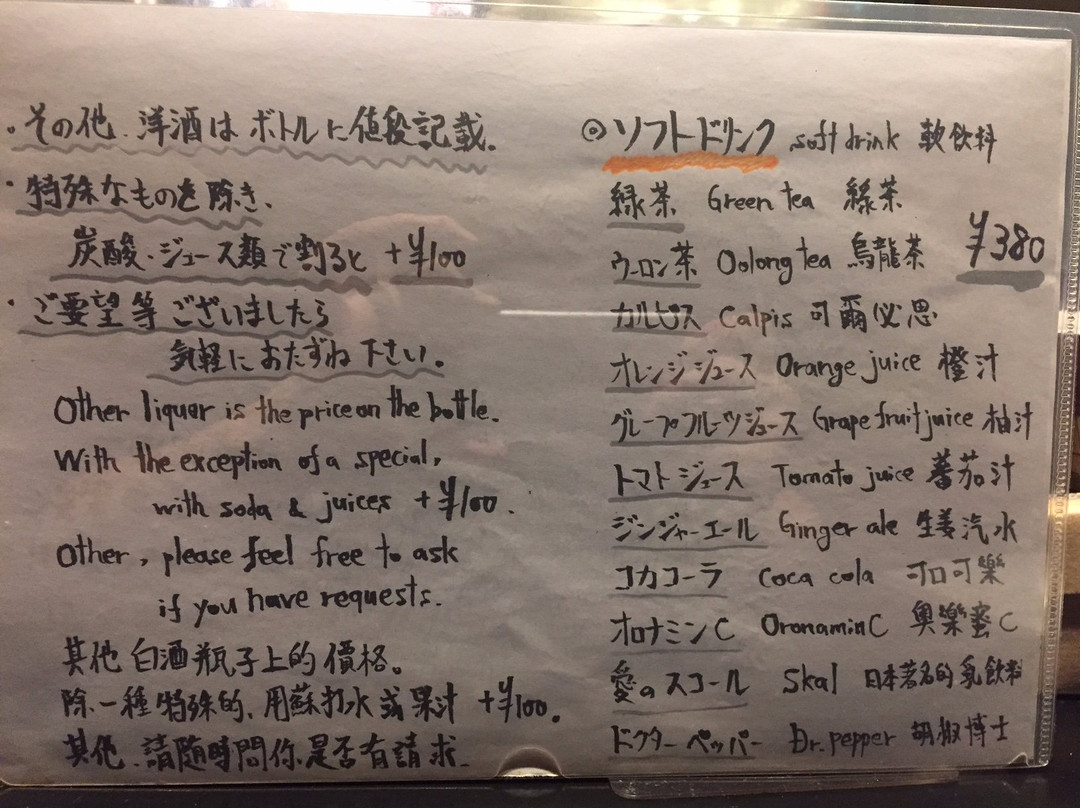 ・その他、洋酒はボトルに値段記載。
・特殊なものを除き、
炭酸・ジュース類で割ると +¥100
・ご要望等ございましたら
気軽におたずね下さい。
Other liquor is the price on the bottle.
With the exception of a special,
with soda & juices +¥100.
Other, please feel free to ask
if you have requests.
其他 白酒瓶子上的價格。
除一種特殊的、用蘇打水或果汁 +¥100。
其他、請随時問你是否有請求.
◎ソフトドリンク soft drink 軟飲料
緑茶 Green tea 綠茶
¥380
ウーロン茶 Oolong tea 烏龍茶
カルピス Calpis 可爾必思
オレンジジュース Orange juice 橙汁
グレープフルーツジュース Grape fruit juice 柚汁
トマトジュース Tomato juice 蕃茄汁
ジンジャーエール Ginger ale 生姜汽水
コカコーラ Coca cola 可口可樂
オロナミンC Oronamin C 奥樂蜜C
愛のスコール Skal 日本著名的乳飲料
ドクターペッパー Dr. pepper 胡椒博士